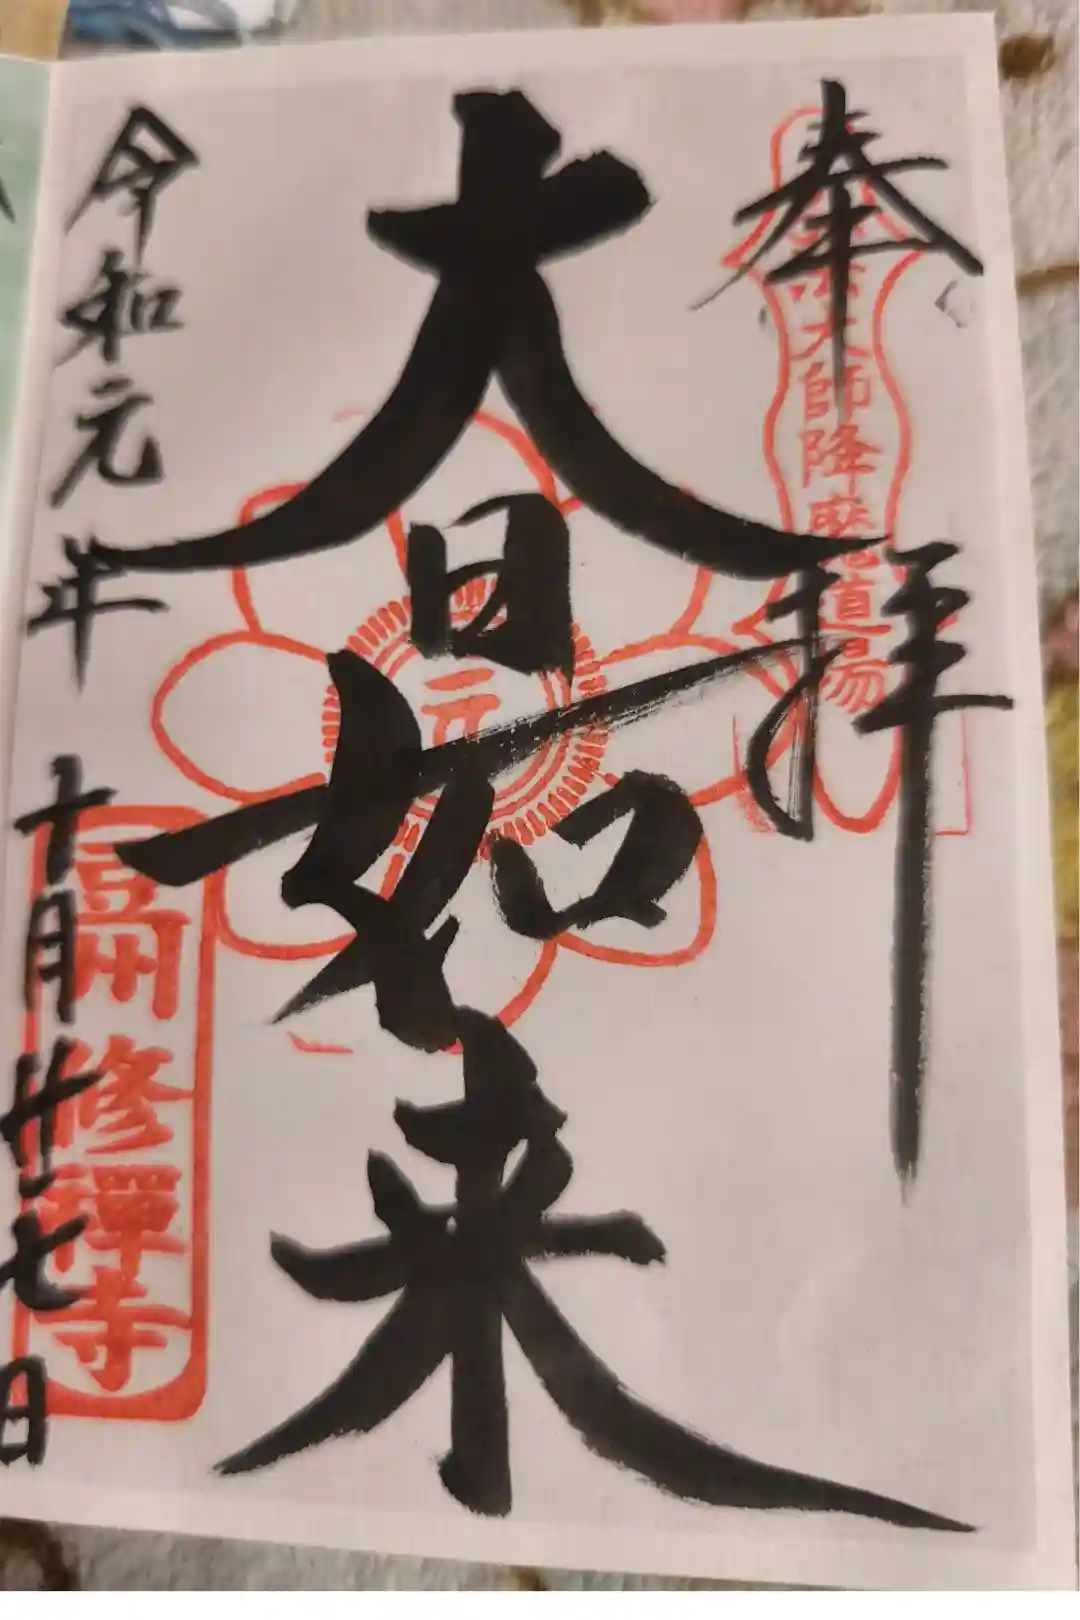 奉拝
大師降魔道場
大日如来
元
令和元年十月廿七日
豆州修禅寺